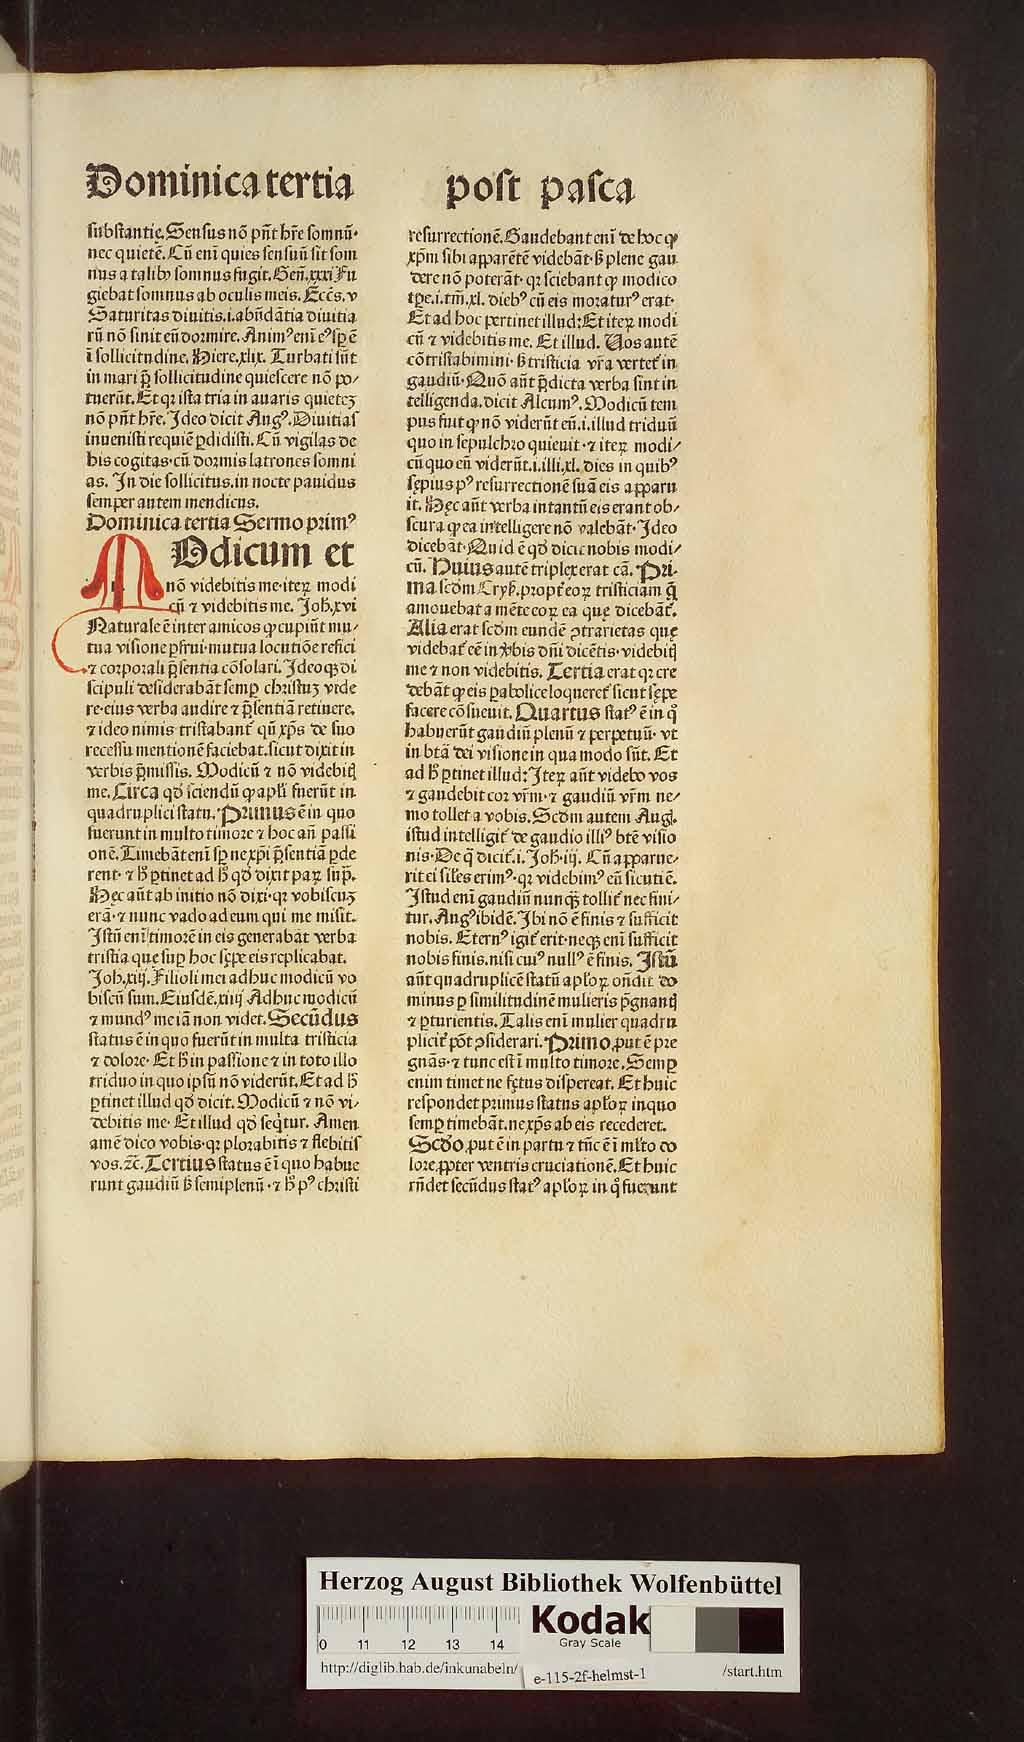 Dominica tertia post pasca
substantię. Sensus nō pn̄t hr̄e somnū·
nec quietē. Cū enī quies sensuū sit som
nus a talibꝰ somnus fugit. Geñ.xxxi Fu
giebat somnus ab oculis meis. Eccs̄. v
Saturitas diuitis .i. abūdātia diuitia
rū nō sinit eū dormire. Animꝰ enī eꝰ sꝑ ē
ī sollicitudine. Hiere.xlix. Turbati sūt
in mari p̄ sollicitudine quiescere nō po/
tuerūt. Et qr ista tria in auaris quietez
nō pn̄t hr̄e. Ideo dicit Augꝰ. Diuitias
inuenisti requiē ꝑdidisti. Cū vigilas de
his cogitas· cū dormis latrones somni
as. In die sollicitus. in nocte pauidus
semper autem mendicus.
Dominica tertia Sermo primꝰ
MOdicum et
nō videbitis me· iteꝝ modi
cū ⁊ videbitis me. Joh̄.xvi
Naturale ē inter amicos ꝙ cupiūt mu/
tua visione ꝑfrui· mutua locutiōe refici
⁊ corporali p̄sentia cōsolari. Ideoqꝫ di
scipuli desiderabāt semꝑ christuꝫ vide
re· eius verba audire ⁊ p̄sentiā retinere.
⁊ ideo nimis tristabant̄ qn̄ xp̄s de suo
recessu mentionē faciebat. sicut dixit in
verbis p̄missis. Modicū ⁊ nō videbiꝶ
me. Circa qd̄ sciendū ꝙ apl̄i fuerūt in
quadruplici statu. Primus ē in quo
fuerunt in multo timore ⁊ hoc an̄ passi
onē. Timebāt enī sꝑ ne xp̄i p̄sentiā ꝑde
rent· ⁊ h̄ ꝑtinet ad h̄ qd̄ dixit paꝝ sup̄.
Hęc aūt ab initio nō dixi· qr vobiscuꝫ
erā· ⁊ nunc vado ad eum qui me misit.
Istū enī timorē in eis generabāt verba
tristia que suꝑ hoc sępe eis replicabat.
Joh.xiij. Filioli mei adhuc modicū vo
biscū sum. Eiusdē.xiiij Adhuc modicū
⁊ mundꝰ me iā non videt. Secūdus
status ē in quo fuerūt in multa tristicia
⁊ dolore· Et h̄ in passione ⁊ in toto illo
triduo in quo ipsū nō viderūt. Et ad h̄
ꝑtinet illud qd̄ dicit. Modicū ⁊ nō vi/
debitis me· Et illud qd̄ seq̄tur. Amen
amē dico vobis· qr plorabitis ⁊ flebitis
vos. ⁊c̄. Tertius status ē ī quo habue
runt gaudiū ß semiplenū· ⁊ h̄ pꝰ christi
resurrectionē. Gaudebant enī de hoc ꝙ
xp̄m sibi apparētē videbāt· ß plene gau
dere nō poterāt· qr sciebant ꝙ modico
tꝑe .i. tm̄ .xl. diebꝰ cū eis moraturꝰ erat·
Et ad hoc pertinet illud: Et iteꝝ modi
cū ⁊ videbitis me. Et illud. Uos autē
cōtristabimini· ß tristicia vr̄a vertet̄ in
gaudiū· Quō aūt p̄dicta verba sint in
telligenda. dicit Alcumꝰ. Modicū tem
pus fuit ꝙ nō viderūt eū .i. illud triduū
quo in sepulchro quieuit· ⁊ iteꝝ modi/
cū quo eū viderūt .i. illi .xl. dies in quibꝰ
sępius pꝰ resurrectionē suā eis apparu
it. Hęc aūt verba in tantū eis erant ob/
scura ꝙ ea intelligere nō valebāt· Ideo
dicebāt· Quid ē qd̄ dicit nobis modi/
cū. Huius autē triplex erat cā. Pri-
ma scd̄m Crys̄. propt̄ eoꝝ tristiciam q̄
amouebat a mēte eoꝝ ea quę dicebāt̄.
Alia erat scd̄m eundē ꝯtrarietas que
videbat̄ eē in v̄bis dn̄i dicētis· videbiꝶ
me ⁊ non videbitis. Tertia erat qr cre
debāt ꝙ eis ꝑabolice loqueret̄ sicut sępe
facere cōsueuit. Quartus statꝰ ē in q̊
habuerūt gaudiū plenū ⁊ perpetuū· vt
in btā dei visione in qua modo sūt. Et
ad h̄ ꝑtinet illud: Iteꝝ aūt videbo vos
⁊ gaudebit cor vr̄m· ⁊ gaudiū vr̄m ne/
mo tollet a vobis. Scd̄m autem Augꝰ.
istud intelligit̄ de gaudio illiꝰ btē visio
nis· De q̄ dicit̄ .i. Joh̄·iij. Cū apparue/
rit ei siles̄ erimꝰ· qr videbimꝰ eū sicuti ē.
Istud enī gaudiū nunqꝫ tollit̄ nec fini/
tur. Augꝰ ibidē. Ibi nō ē finis ⁊ sufficit
nobis. Eternꝰ igit̄ erit· neqꝫ enī sufficit
nobis finis. nisi cuiꝰ nullꝰ ē finis. Istū
aūt quadruplicē statū apl̄oꝝ on̄dit do
minus ꝑ similitudinē mulieris p̄gnanꝶ
⁊ ꝑturientis. Talis enī mulier quadru
plicit̄ pōt ꝯsiderari. Primo ꝓut ē pre
gnās· ⁊ tunc est ī multo timore. Semꝑ
enim timet ne fętus dispereat. Et huic
respondet primus status apl̄oꝝ in quo
semꝑ timebāt. ne xp̄s ab eis recederet.
Scd̄o ꝓut ē in partu ⁊ tūc ē ī ml̄to do
lore ꝓpter ventris cruciationē. Et huic
rn̄det secūdus statꝰ apl̄oꝝ in q̊ fuerunt
Herzog August Bibliothek Wolfenbüttel
Kodak
Gray Scale
0 11 12 13 14
http://diglib.hab.de/inkunabeln/ e-115-2f-helmst-1 /start.htm